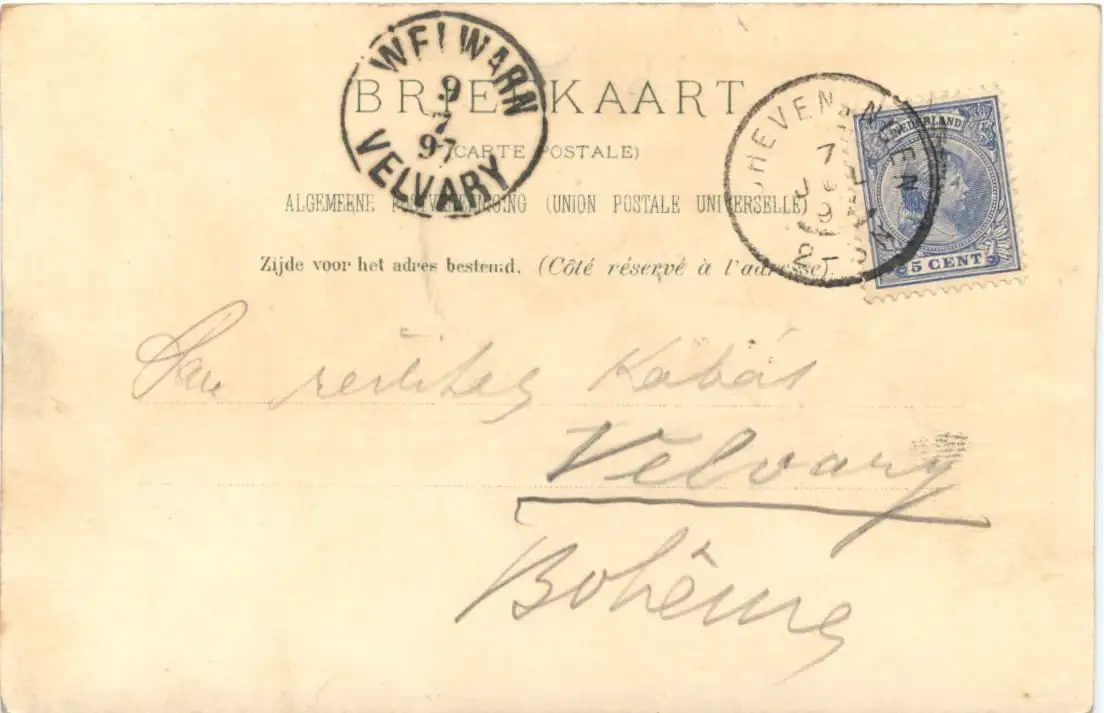 WELWARN
9
7
97
VELVARY
BRIEFKAART
(CARTE POSTALE)
ALGEMEENE POSTVEREENIGING (UNION POSTALE UNIVERSELLE)
Zijde voor het adres bestemd. (Côté réservé à l'adresse).
NEDERLAND
5 CENT
7
Pan ředitel Kabát
Velvary
Bohême